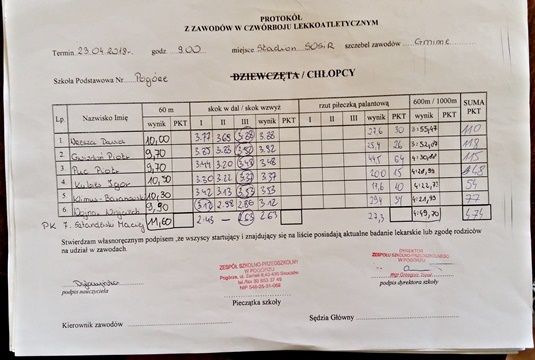 PROTOKÓŁ
Z ZAWODÓW W CZWÓRBOJU LEKKOATLETYCZNYM
Termin 23.04.2018r. godz 9.00 miejsce Stadion SOSiR szczebel zawodów Gminne
Szkoła Podstawowa Nr Pogórze DZIEWCZĘTA / CHŁOPCY
Lp. Nazwisko Imię 60 m skok w dal / skok wzwyż rzut piłeczką palantową 600m / 1000m SUMA PKT
wynik PKT I II III wynik PKT I II III wynik PKT wynik PKT
1. Dawid 10,00 3.77 3.68 3.88 3.88 27,6 30 3:55,47 110
2. Piotr 9,70 3.85 3.83 3.92 25,4 26 118
3. Puc Piotr 9,70 3.44 3.20 3.48 3.48 44,5 64 115
4. Igor 10,30 3.30 3.22 3.37 3.37 20,0 15
5. Klimus- 10,30 3.42 3.13 3.53 3.53 17,6 10 54
6. Wojna Wojciech 9,90 3.12 2.98 2.86 3.12 29,4 34 77
PK 7. Maciej 11,60 2.43 – 2.63 2.63 27,3
Stwierdzam własnoręcznym podpisem ,że wszyscy startujący i znajdujący się na liście posiadają aktualne badanie lekarskie lub zgodę rodziców
na udział w zawodach.
podpis nauczyciela
ZESPÓŁ SZKOLNO-PRZEDSZKOLNY
W POGÓRZU
Pogórze, ul. Zamek 8, 43-430 Skoczów
Pieczątka szkoły
DYREKTOR
ZESPOŁU SZKOLNO-PRZEDSZKOLNEGO
W POGÓRZU
mgr Grzegorz
podpis dyrektora szkoły
Kierownik zawodów Sędzia Główny